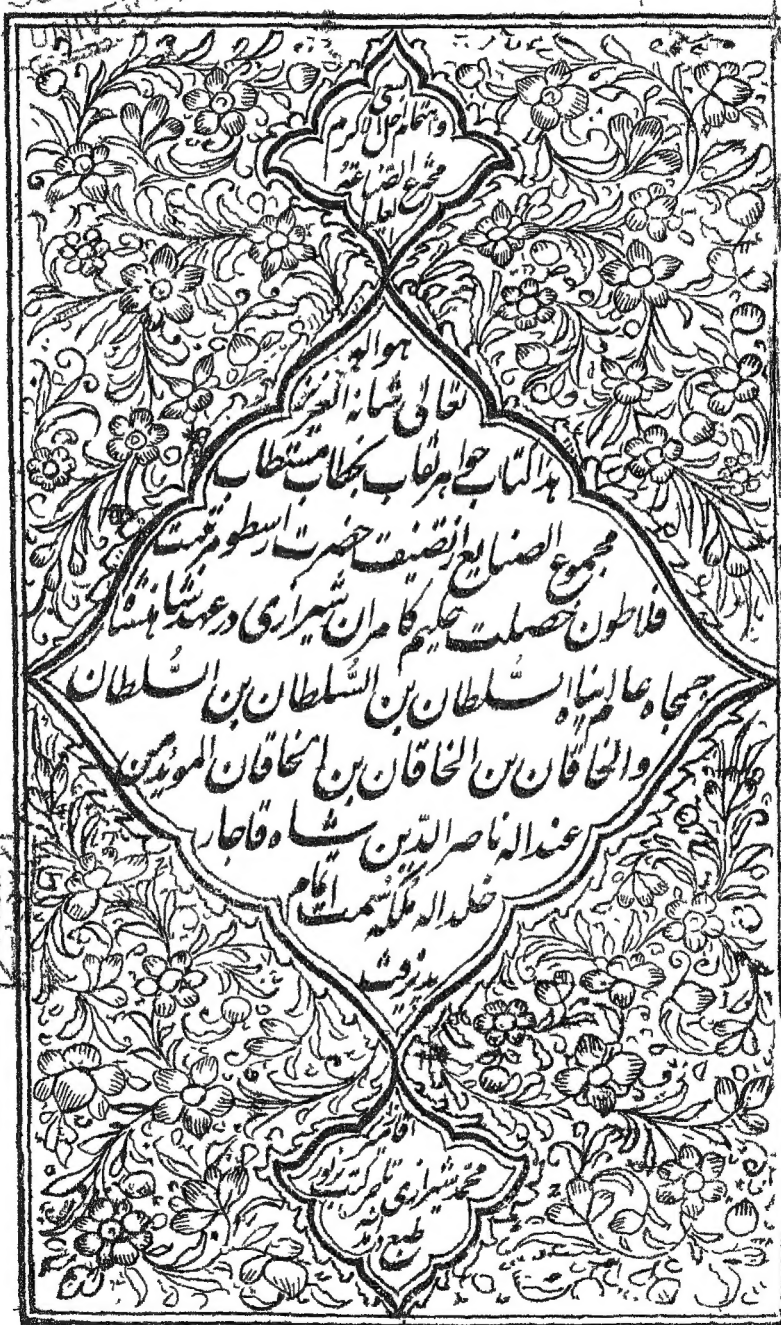 UNIVE
بسعی
واهتمام اقل الاکرم
هواله
تعالی شانه العزیز
هذالکتاب جواهرنقاب بخطاب مستطاب
مجموع الصنایع ازتصنیف حضرت ارسطو مرتبت
فلاطون خصلت حکیم کامران شیرازی درعهد شاهنشاه
جمجاه عالم پناه السُّلطان بن السُّلطان بن السُّلطان
والخاقان بن الخاقان بن الخاقان المویدمن
عنداله ناصرالدّین شاه قاجار
خلداله ملکه سمت اتمام
پذیرفت
محمد شیرازی تاجر کتب
طبع